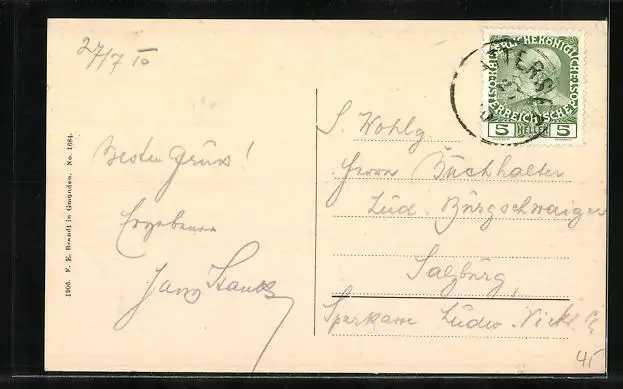 27/7 10
Besten Gruss!
Ergebener
1906. F. E. Brandt in Gmunden. No. 1684.
KAISERLICHE KÖNIGLICHE
ÖSTERREICHISCHE
5 HELLER 5
S. Wohlg
Herrn Buchhalter
Lud. Burgschwaiger
Salzburg,
Sparkasse Ludw.
45